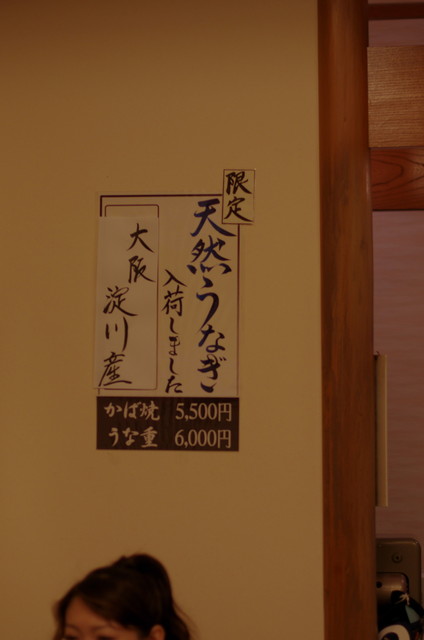 限定
天然うなぎ
入荷しました
大阪 淀川産
かば焼 5,500円
うな重 6,000円